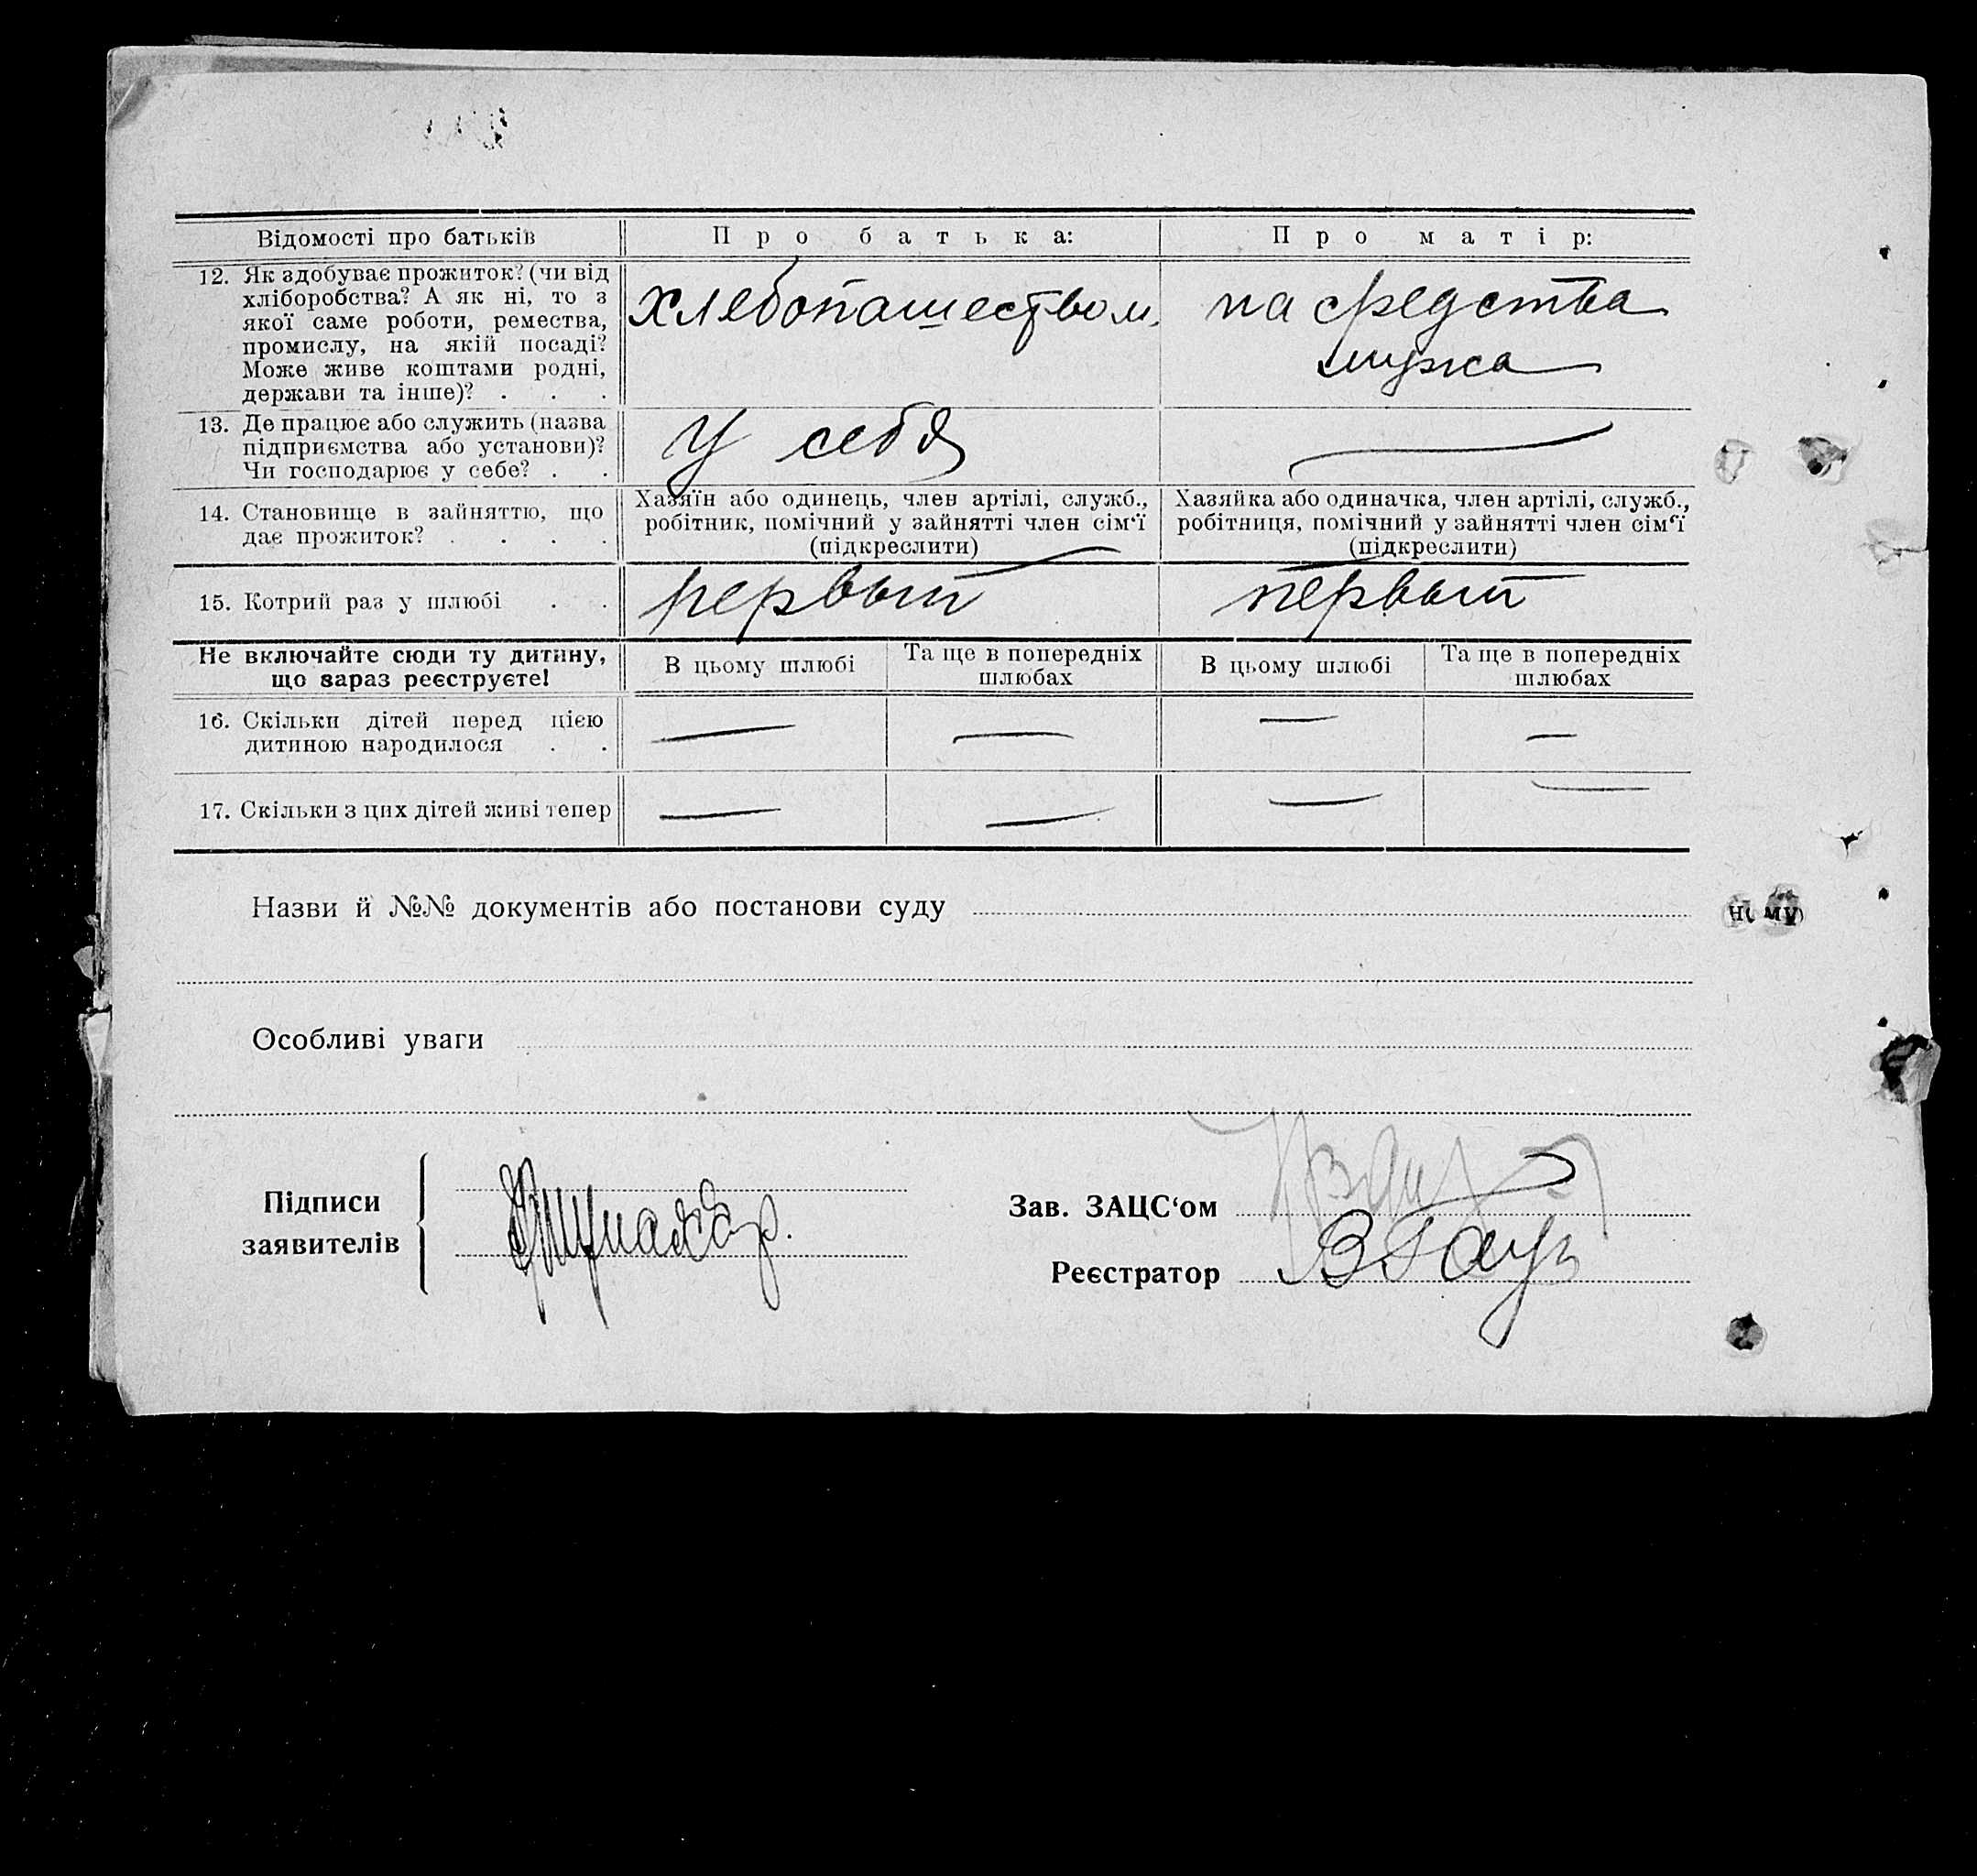 Відомості про батьків
Про батька:
Про матір:
12. Як здобуває прожиток? (чи від
хліборобства? А як ні, то з
якої саме роботи, ремества,
промислу, на якій посаді?
Може живе коштами родні,
держави та інше)? . . .
хлебопашеством.
на средства
мужа
13. Де працює або служить (назва
підприємства або установи)?
Чи господарює у себе? . .
у себя
—
14. Становище в зайняттю, що
дає прожиток? . . . .
Хазяїн або одинець, член артілі, служб.,
робітник, помічний у зайнятті член сім‘ї
(підкреслити)
Хазяйка або одиначка, член артілі, служб.,
робітниця, помічний у зайнятті член сім‘ї
(підкреслити)
15. Котрий раз у шлюбі . .
первый
первый
Не включайте сюди ту дитину,
що зараз реєструєте!
В цьому шлюбі
Та ще в попередніх
шлюбах
В цьому шлюбі
Та ще в попередніх
шлюбах
16. Скільки дітей перед цією
дитиною народилося . .
— — — —
17. Скільки з цих дітей живі тепер
— — — —
Назви й №№ документів або постанови суду
ному
Особливі уваги
Підписи
заявителів
Зав. ЗАЦС‘ом
Реєстратор